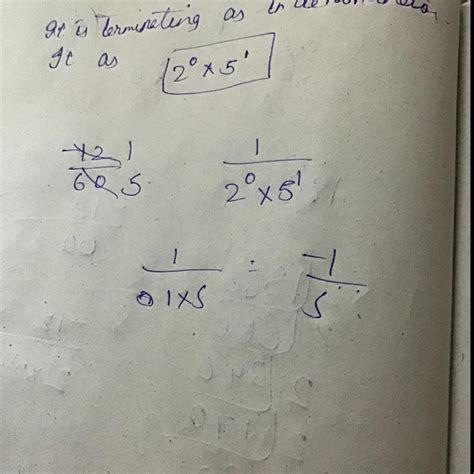 It is terminating as in
It as 2⁰ × 5¹
-12 1 / 60 5    1 / 2⁰ × 5¹
1 / 1×5 = -1 / 5